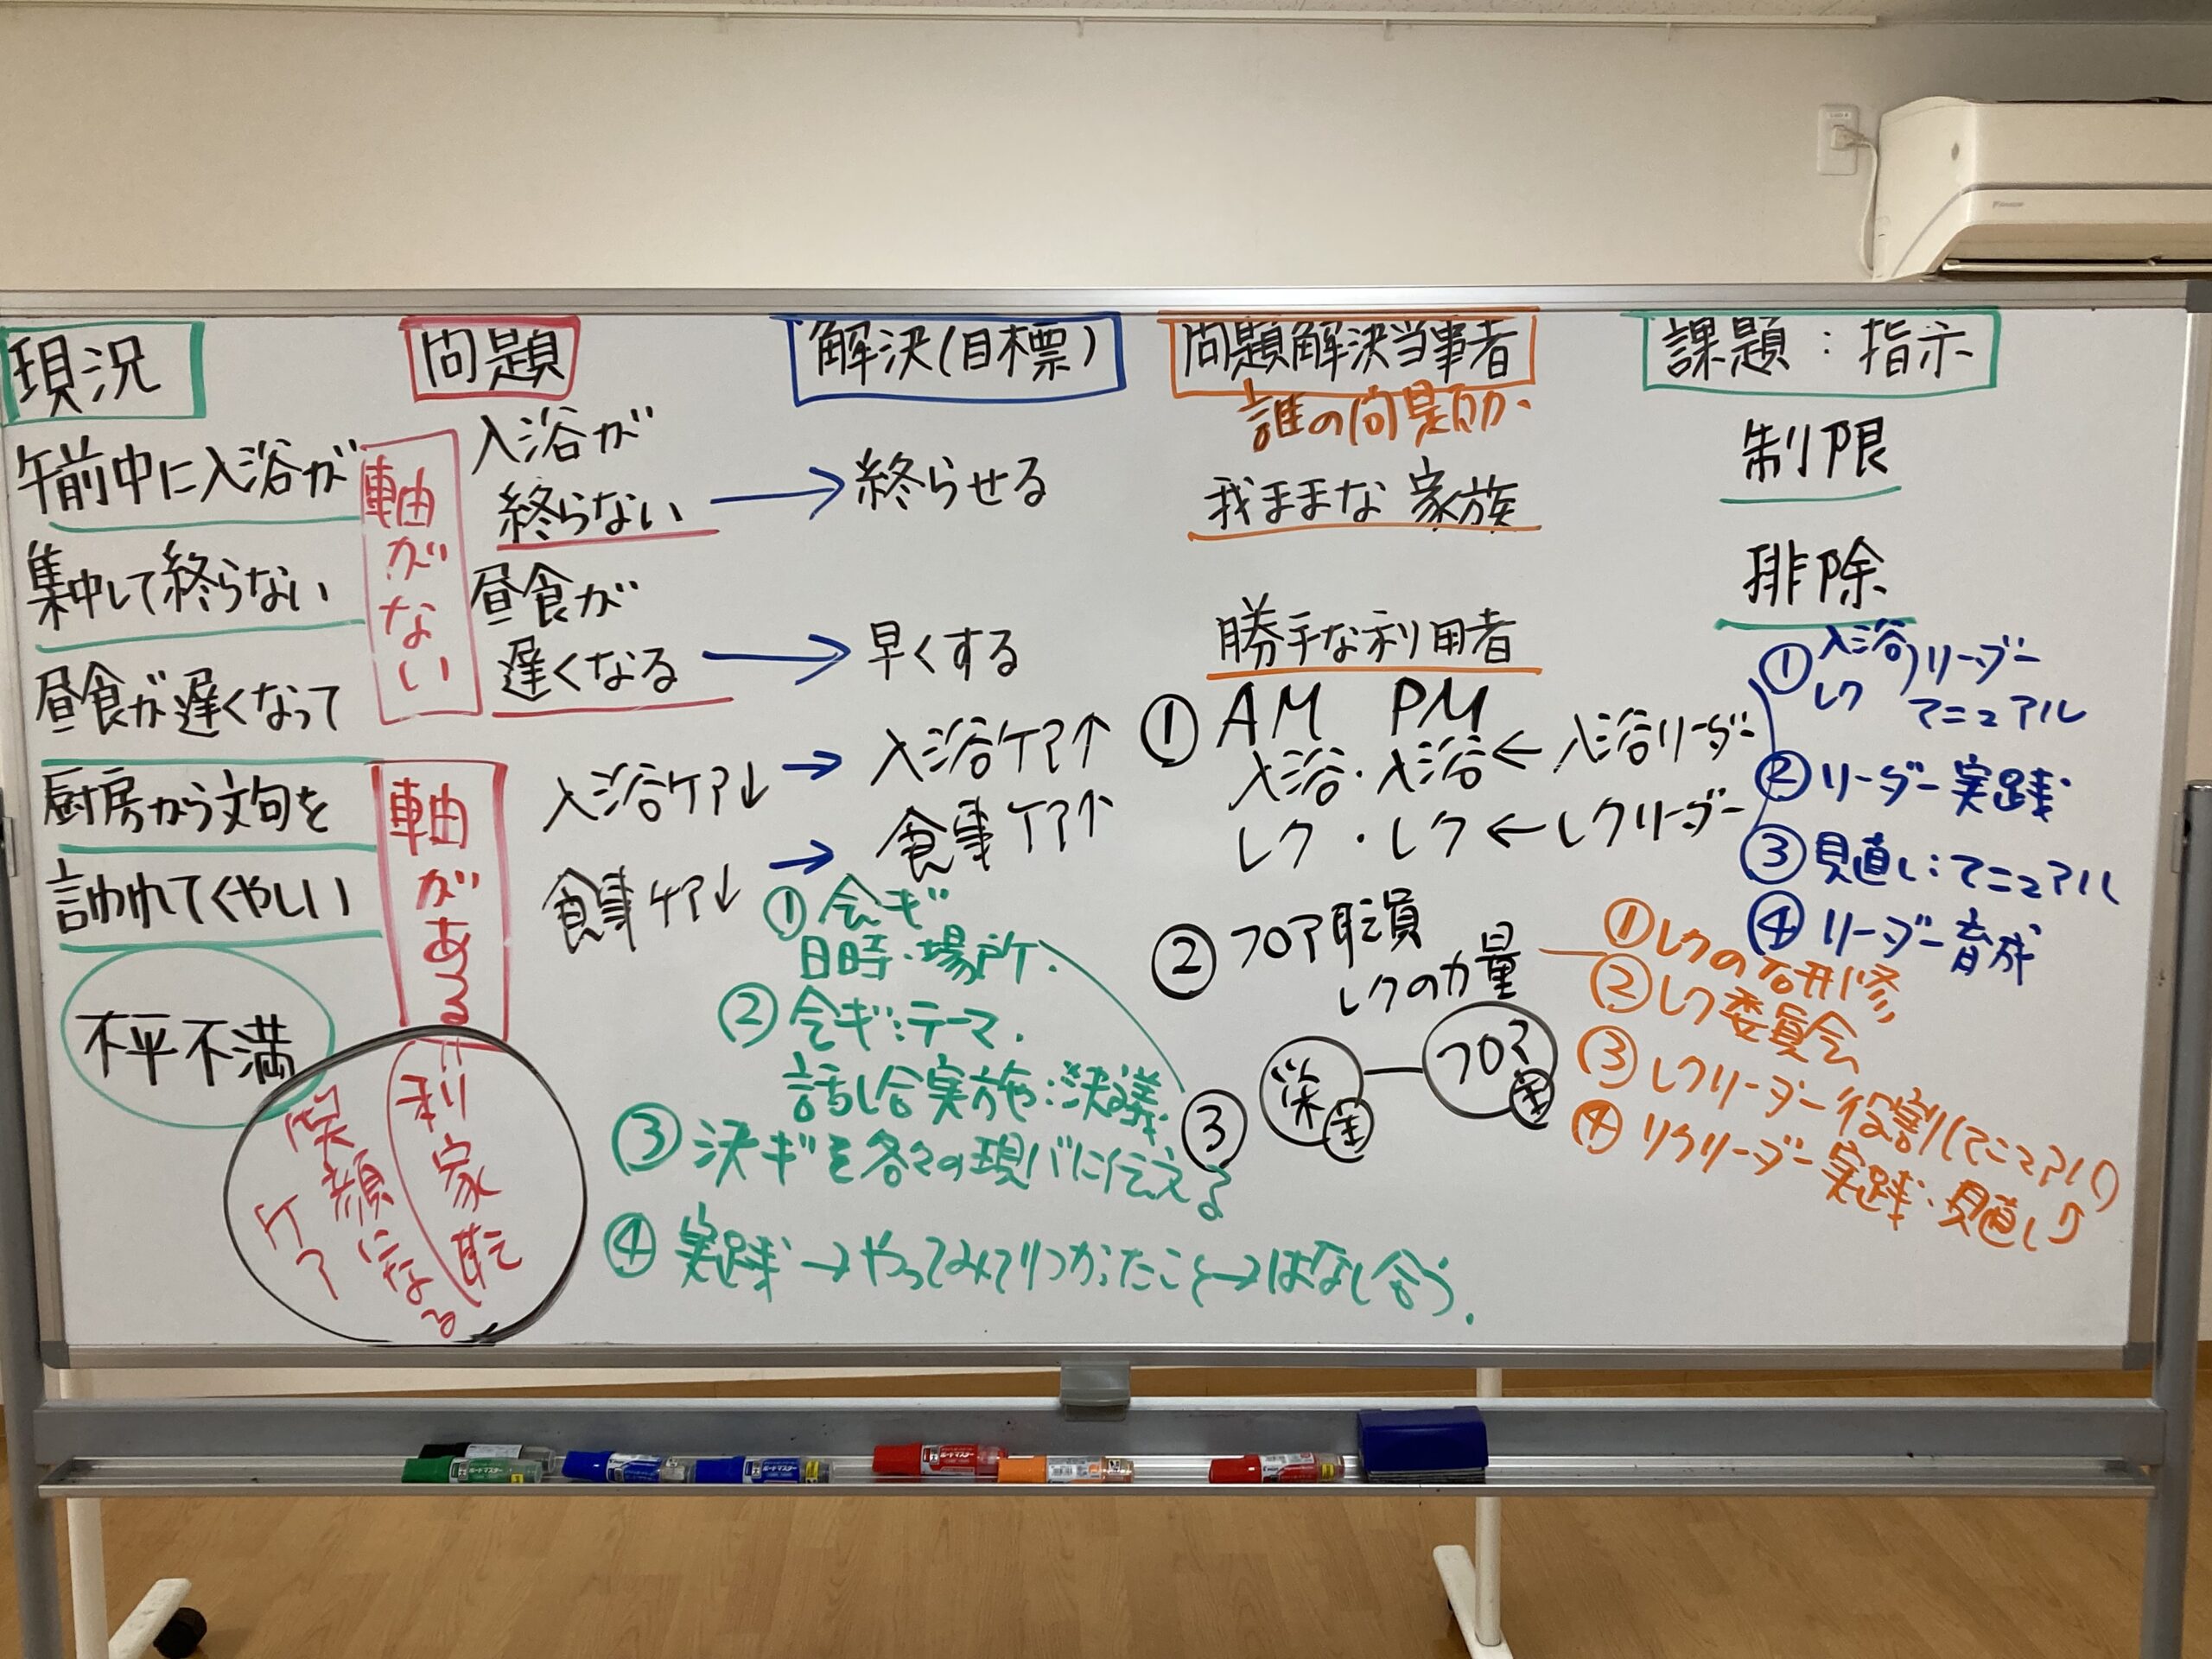 現況
午前中に入浴が
集中して終らない
昼食が遅くなって
厨房から文句を
言われてくやしい
不平不満
問題
軸がない
入浴が
終らない
昼食が
遅くなる
軸がある
入浴ケア↓
食事ケア↓
利家職
笑顔になる
ケア
解決(目標)
→終らせる
→早くする
→入浴ケア↑
→食事ケア↑
①会ギ
日時・場所.
②会ギ:テーマ.
話し合実施:決議.
③決ギを各々の現バに伝える
④実践→やってみて
→はなし合う.
問題解決当事者
誰の問題か、
我ままな家族
勝手な利用者
① AM PM
入浴・入浴←入浴リーダー
レク・レク←レクリーダー
②フロア職員
レクの力量
③
栄
フロア
課題:指示
制限
排除
①入浴)リーダー
レク マニュアル
②リーダー実践
③見直し:マニュアル
④リーダー育成
①レクの研修
②レク委員会
③レクリーダー役割(マニュアル)
④リクリーダー実践:見直し